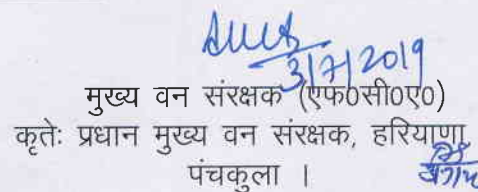 3/7/2019
मुख्य वन संरक्षक (एफ0सी0ए0)
कृतेः प्रधान मुख्य वन संरक्षक, हरियाणा
पंचकुला ।